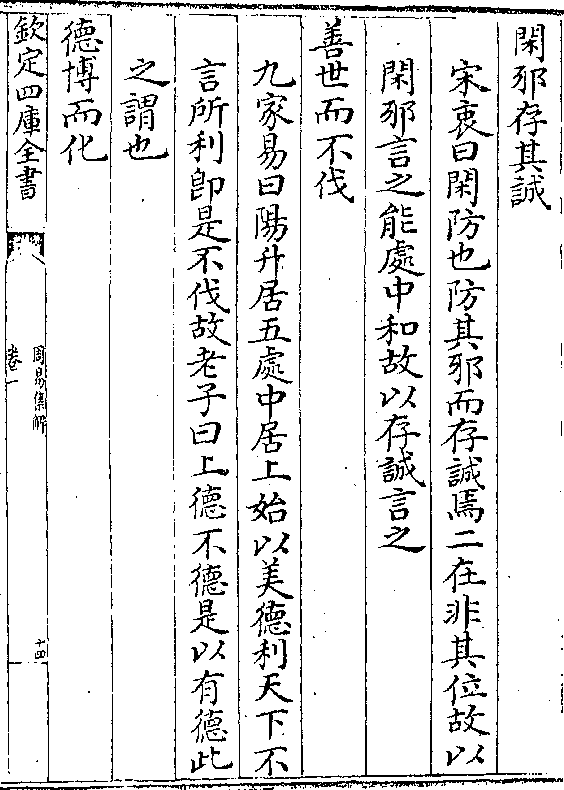 閑邪存其誠
宋衷曰閑防也防其邪而存誠焉二在非其位故以
閑邪言之能處中和故以存誠言之
善世而不伐
九家易曰陽升居五處中居上始以美德利天下不
言所利卽是不伐故老子曰上德不德是以有德此
之謂也
德博而化
欽定四庫全書
周易集解
卷一
十四